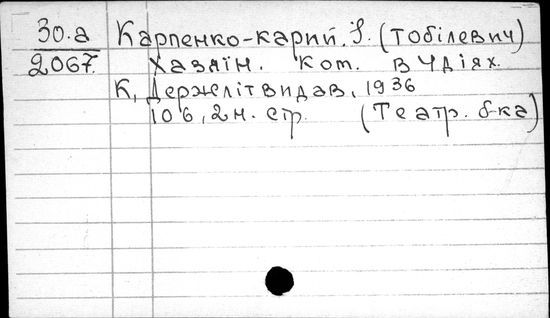 30.а Карпенко-карий. І. (Тобілевич)
2067. Хазяїн. Ком. в 4 діях.
К, Держлітвидав, 1936
106, 2 н. стр. (Театр. б-ка)